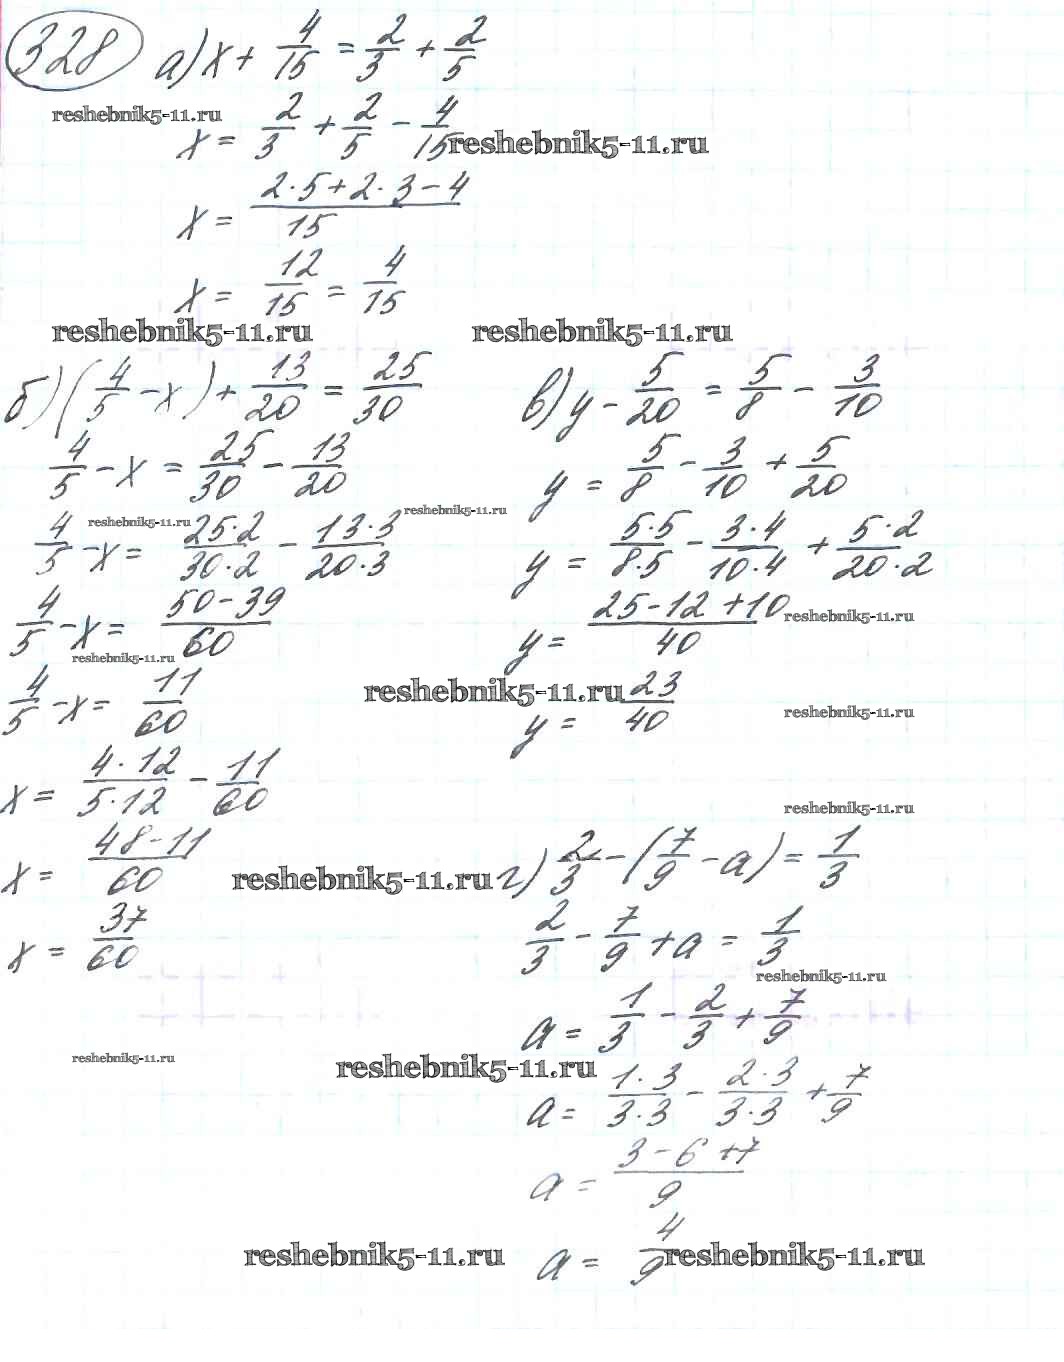 328 а) x + 4/15 = 2/3 + 2/5
reshebnik5-11.ru
x = 2/3 + 2/5 − 4/15 reshebnik5-11.ru
x = (2·5+2·3−4)/15
x = 12/15 = 4/15
reshebnik5-11.ru reshebnik5-11.ru
б) (4/5 − x) + 13/20 = 25/30
4/5 − x = 25/30 − 13/20
reshebnik5-11.ru reshebnik5-11.ru
4/5 − x = 25·2/30·2 − 13·3/20·3
4/5 − x = (50−39)/60
reshebnik5-11.ru
4/5 − x = 11/60
x = 4·12/5·12 − 11/60
x = (48−11)/60
x = 37/60
reshebnik5-11.ru
в) y − 5/20 = 5/8 − 3/10
y = 5/8 − 3/10 + 5/20
y = 5·5/8·5 − 3·4/10·4 + 5·2/20·2
y = (25−12+10)/40 reshebnik5-11.ru
reshebnik5-11.ru
y = 23/40 reshebnik5-11.ru
reshebnik5-11.ru
reshebnik5-11.ru г) 2/3 − (7/9 − a) = 1/3
2/3 − 7/9 + a = 1/3
reshebnik5-11.ru
a = 1/3 − 2/3 + 7/9
reshebnik5-11.ru
a = 1·3/3·3 − 2·3/3·3 + 7/9
a = (3−6+7)/9
a = 4/9
reshebnik5-11.ru reshebnik5-11.ru